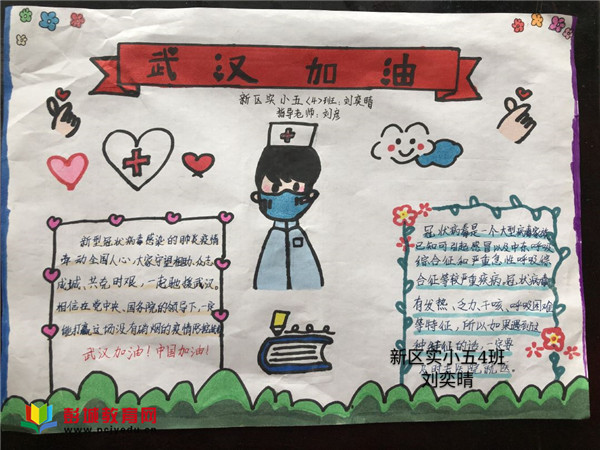 武汉加油
新区实小五<4>班:刘奕晴
指导老师:刘彦
新型冠状病毒感染的肺炎疫情
牵动全国人心,大家守望相助、众志
成城、共克时艰,一起驰援武汉。
相信在党中央、国务院的领导下,一定
能打赢这场没有硝烟的疫情
武汉加油!中国加油!
冠状病毒是一个大型病毒家族
已知可引起感冒以及中东呼吸
综合征和严重急性呼吸综
合征等较严重疾病,冠状病毒
有发热、乏力、干咳、呼吸困难
等特征,所以如果遇到
的话,一定要
新区实小五4班
刘奕晴
彭城教育网